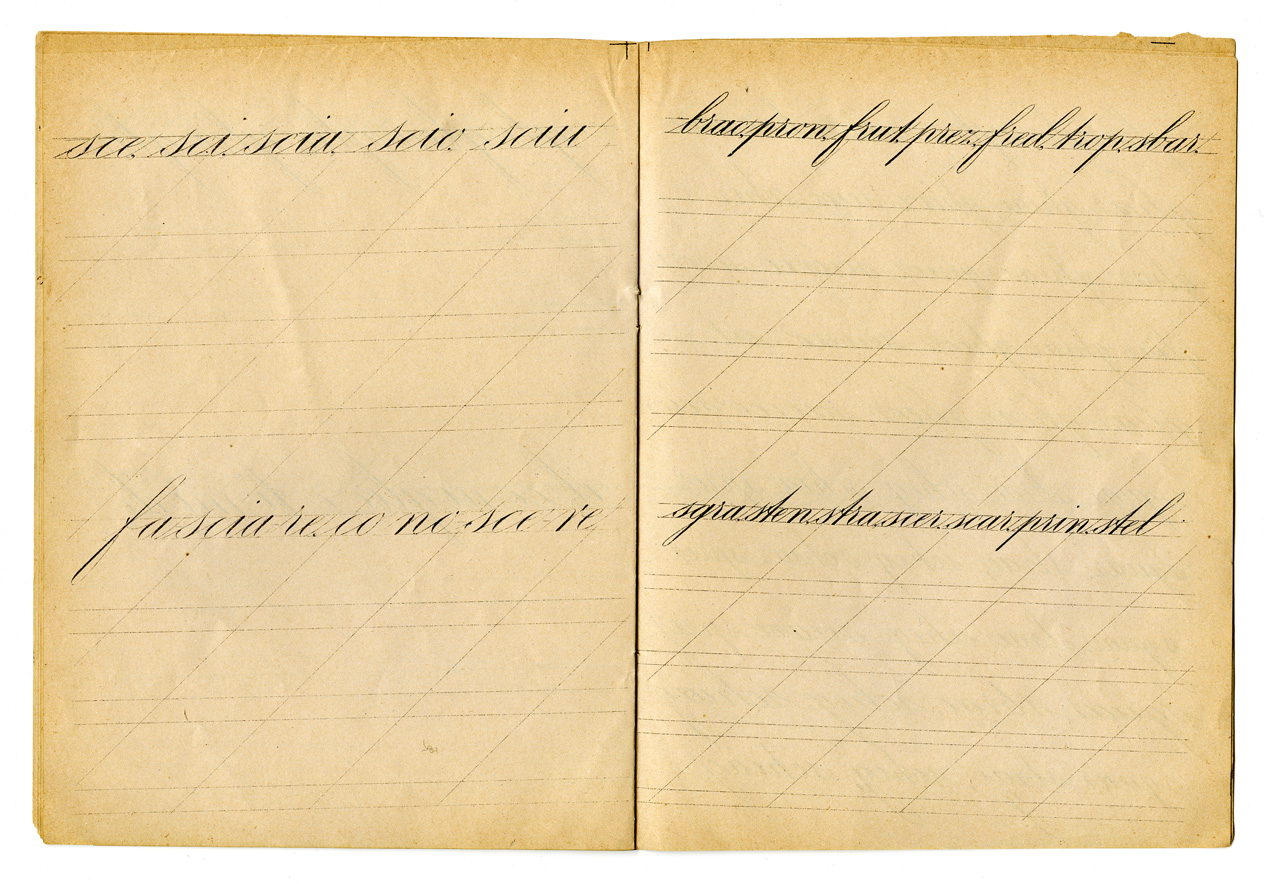 sce sci scia scio sciu
fa scia re co no sce re
brac pron frut prez fred trop sbar
sgra sten stra scer scar prin stel